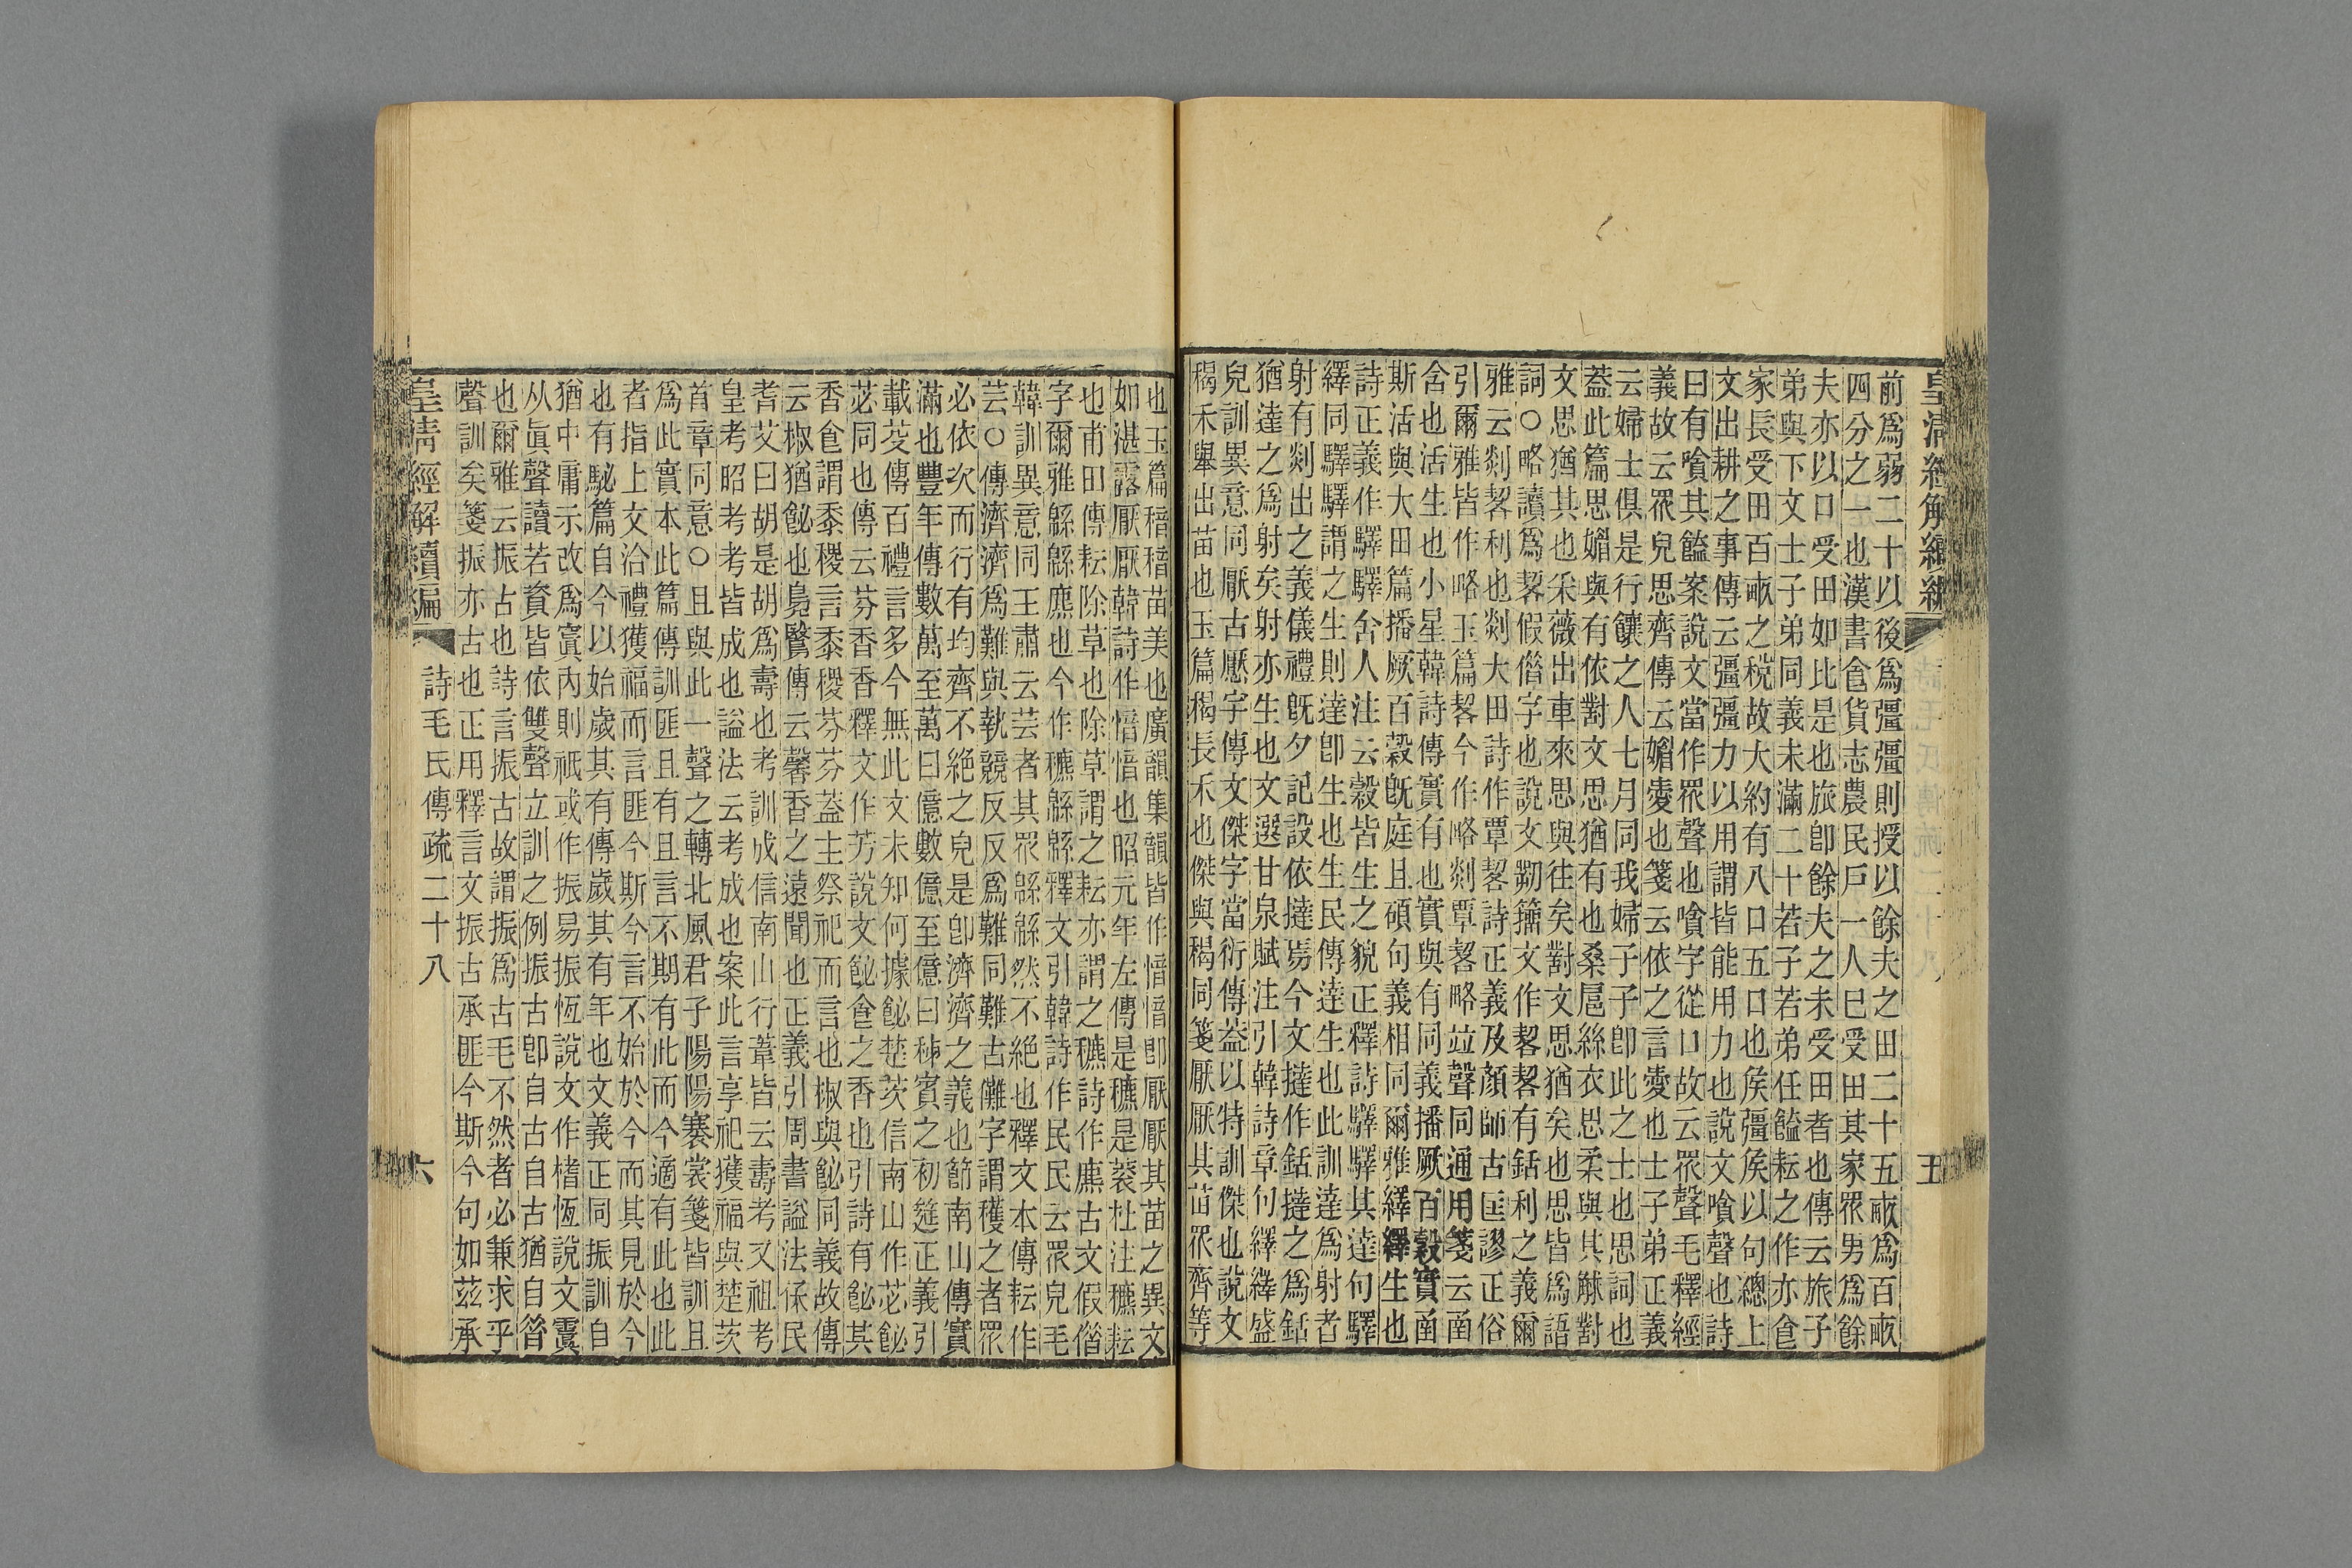 皇清經解續編
五
前爲弱二十以後爲彊彊則授以餘夫之田二十五畝爲百畝
四分之一也漢書食貨志農民戶一人巳受田其家眾男爲餘
夫亦以口受田如比是也旅卽餘夫之未受田者也傳云旅子
弟與下文士子弟同義未滿二十若子若弟任饁耘之作亦食
家長受田百畝之稅故大約有八口五口也矦彊矦以句總上
文出耕之事傳云彊彊力以用謂皆能用力也說文噲聲也詩
曰有噲其饁案說文當作眾聲也噲字從口故云眾聲毛釋經
義故云眾皃思齊傳云媚愛也箋云依之言愛也士子弟正義
云婦士俱是行饟之人七月同我婦子子卽此之士也思詞也
蓋此篇思媚與有依對文思猶有也桑扈絲衣思柔與其觩對
文思猶其也采薇出車來思與往矣對文思猶矣也思皆爲語
詞○略讀爲䂮假僭字也說文䂮籀文作䂮䂮有銛利之義爾
雅云剡䂮利也剡大田詩作覃䂮詩正義及顏師古匡謬正俗
引爾雅皆作略玉篇䂮今作略剡覃䂮略竝聲同通用箋云函
含也活生也小星韓詩傳實有也實與有同義播厥百穀實函
斯活與大田篇播厥百穀旣庭且碩句義相同爾雅繹繹生也
詩正義作驛驛舍人注云穀皆生之貌正釋詩驛驛其達句驛
繹同驛驛謂之生則達卽生也生民傳達生也此訓達爲射者
射有剡出之義儀禮旣夕記設依撻焉今文撻作銛撻之爲銛
猶達之爲射矣射亦生也文選甘泉賦注引韓詩章句繹繹盛
皃訓異意同厭古壓字傳文傑字當衍傳蓋以特訓傑也說文
稬禾舉出苗也玉篇稬長禾也傑與稬同箋厭厭其苗眾齊等
也玉篇稖稖苗美也廣韻集韻皆作愔愔卽厭厭其苗之異文
如湛露厭厭韓詩作愔愔也昭元年左傳是穮是蔉杜注穮耘
也甫田傳耘除草也除草謂之耘亦謂之穮詩作麃古文假僭
字爾雅緜緜麃也今作穮緜緜釋文引韓詩作民民云眾皃毛
韓訓異意同王肅云芸者其眾緜緜然不絕也釋文本傳耘作
芸○傳濟濟爲難與執競反反爲難同難古儺字謂穫之者眾
必依次而行有均齊不絕之皃是卽濟濟之義也節南山傳實
滿也豐年傳數萬至萬曰億數億至億曰秭賓之初筵正義引
載芟傳百禮言多今無此文未知何據飶楚茨信南山作苾飶
苾同也傳云芬香香釋文作芳說文飶食之香也引詩有飶其
香食謂黍稷言黍稷芬芬蓋主祭祀而言也椒與飶同義故傳
云椒猶飶也鳧鷖傳云馨香之遠聞也正義引周書謚法保民
耆艾曰胡是胡爲壽也考訓成信南山行葦皆云壽考又祖考
皇考昭考考皆成也謚法云考成也案此言享祀獲福與楚茨
首章同意○且與此一聲之轉北風君子陽陽褰裳箋皆訓且
爲此實本此篇傳訓匪且有且言不期有此而今適有此也此
者指上文洽禮獲福而言匪今斯今言不始於今而其見於今
也有駜篇自今以始歲其有傳歲其有年也文義正同振訓自
猶中庸示改爲寘內則祇或作振易振恆說文作榰恆說文䨲
从眞聲讀若資皆依雙聲立訓之例振古卽自古自古猶自昝
也爾雅云振古也詩言振古故謂振爲古毛不然者必兼求乎
聲訓矣箋振亦古也正用釋言文振古承匪今斯今句如茲承
皇清經解續編
詩毛氏傳疏二十八
六